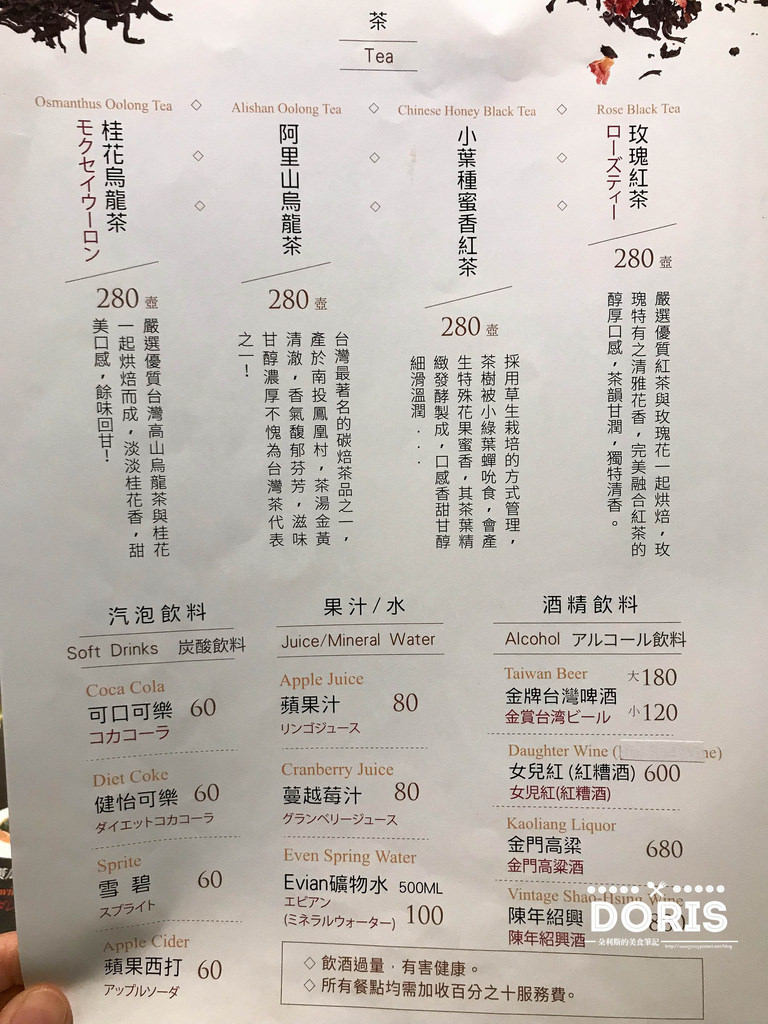 茶
Tea
Osmanthus Oolong Tea
桂花烏龍茶
モクセイウーロン
280 壺
嚴選優質台灣高山烏龍茶與桂花
一起烘焙而成，淡淡桂花香，甜
美口感，餘味回甘！
Alishan Oolong Tea
阿里山烏龍茶
280 壺
台灣最著名的碳焙茶品之一，
產於南投鳳凰村，茶湯金黃
清澈，香氣馥郁芬芳，滋味
甘醇濃厚不愧為台灣茶代表
之一！
Chinese Honey Black Tea
小葉種蜜香紅茶
280 壺
採用草生栽培的方式管理，
茶樹被小綠葉蟬吮食，會產
生特殊花果蜜香，其茶葉精
緻發酵製成，口感香甜甘醇
細滑溫潤...
Rose Black Tea
玫瑰紅茶
ローズティー
280 壺
嚴選優質紅茶與玫瑰花一起烘焙，玫
瑰特有之清雅花香，完美融合紅茶的
醇厚口感，茶韻甘潤，獨特清香。
汽泡飲料
Soft Drinks 炭酸飲料
Coca Cola
可口可樂 60
コカコーラ
Diet Coke
健怡可樂 60
ダイエットコカコーラ
Sprite
雪碧 60
スプライト
Apple Cider
蘋果西打 60
アップルソーダ
果汁/水
Juice/Mineral Water
Apple Juice
蘋果汁 80
リンゴジュース
Cranberry Juice
蔓越莓汁 80
グランベリージュース
Even Spring Water
Evian礦物水 500ML
エビアン
(ミネラルウォーター) 100
酒精飲料
Alcohol アルコール飲料
Taiwan Beer 大180
金牌台灣啤酒
金賞台湾ビール 小120
Daughter Wine (
女兒紅(紅糟酒) 600
女児紅(紅糟酒)
Kaoliang Liquor
金門高粱 680
金門高粱酒
Vintage Shao-Hsing Wine
陳年紹興
陳年紹興酒
◇ 飲酒過量，有害健康。
◇ 所有餐點均需加收百分之十服務費。
DORIS
朵利斯的美食筆記